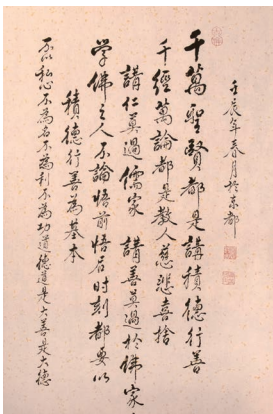 壬辰年春月於京都
千萬聖賢都是講積德行善
千經萬論都是教人慈悲喜捨
講仁莫過儒家 講善莫過於佛家
学佛之人不論悟前悟后时刻都要以
積德行善為基本
不以私心不為名不為利不為功道德道是大善是大德